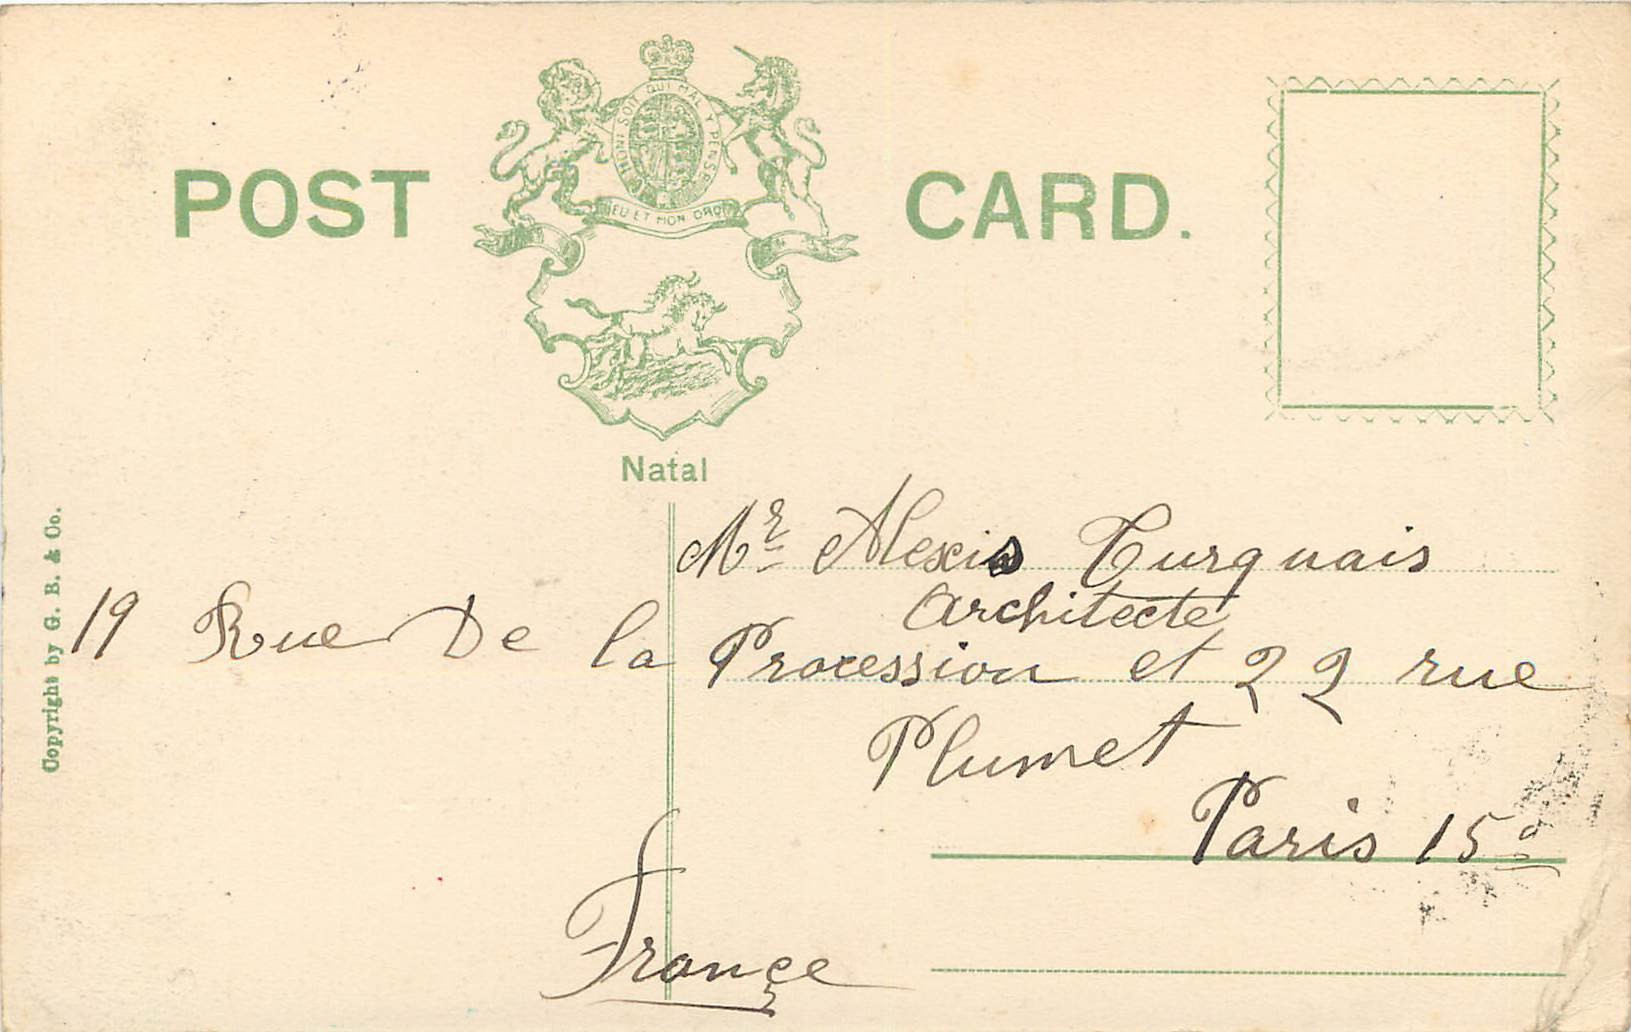 POST CARD.
HONI SOIT QUI MAL Y PENSE
DIEU ET MON DROIT
Natal
Copyright by G. B. & Co.
Mr Alexis Turquais
Architecte
19 Rue De la Procession et 22 rue
Plumet
Paris 15e
France